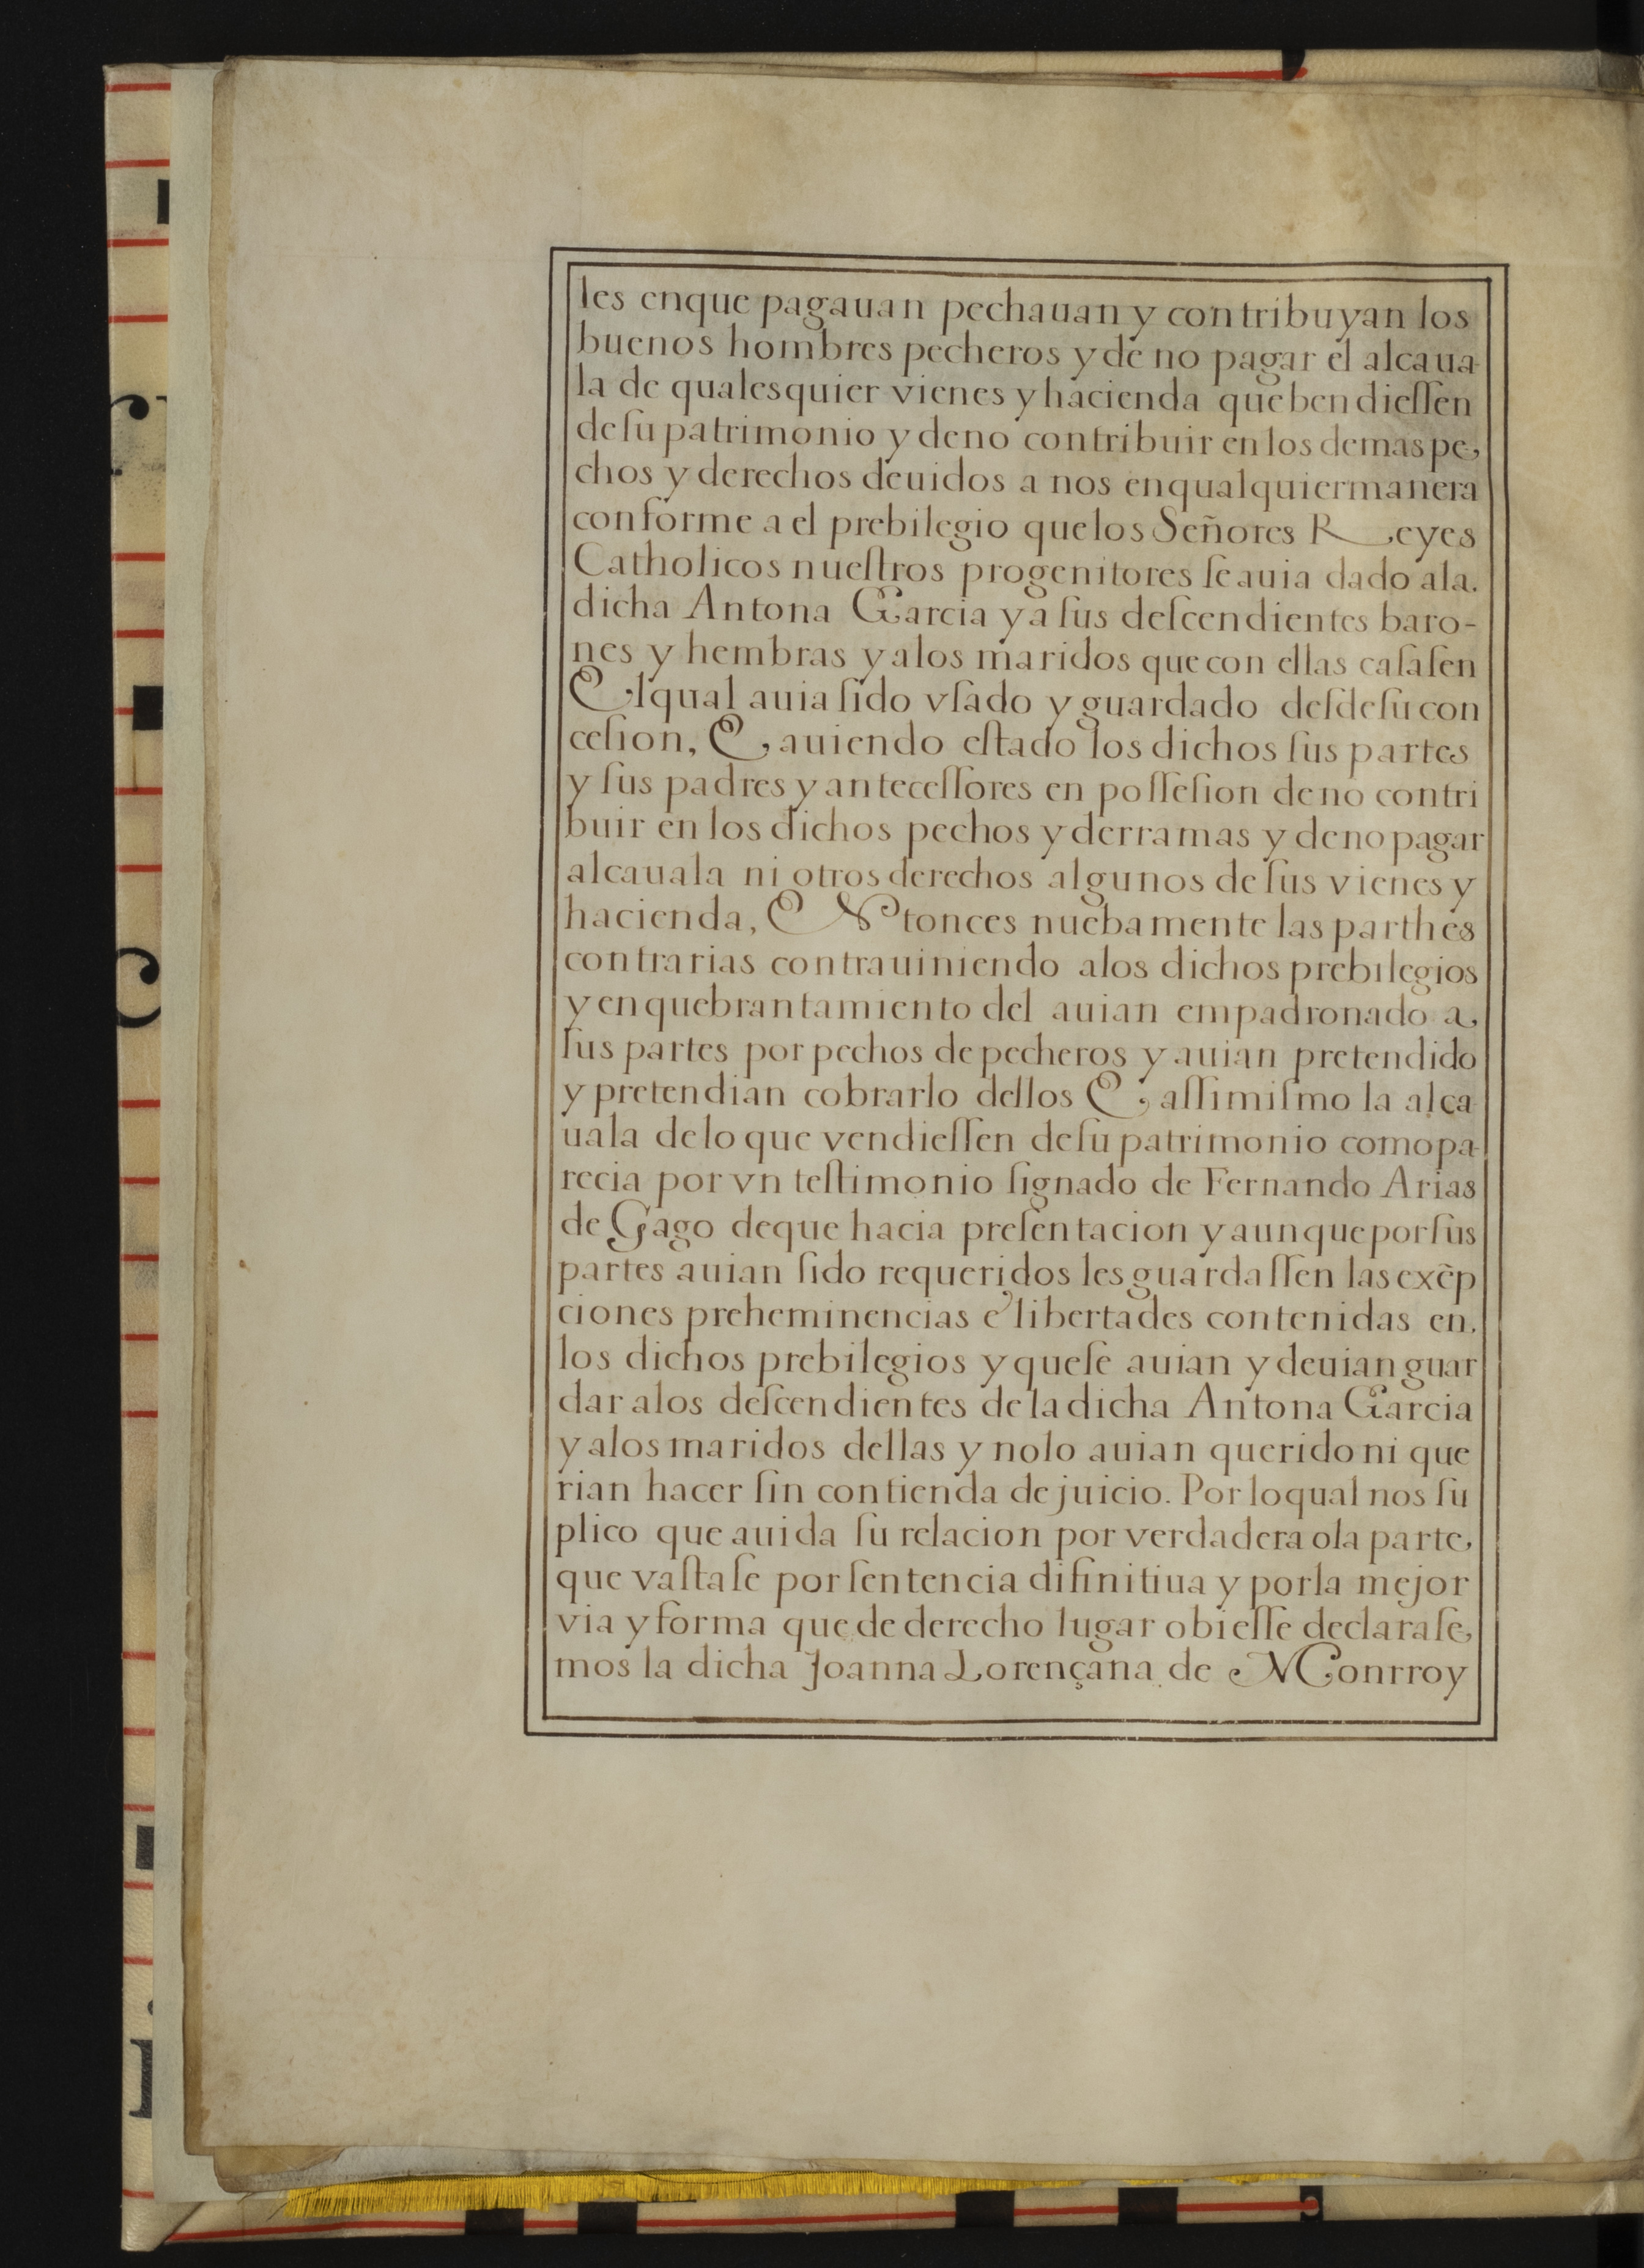 les enque pagauan pechauan y contribuyan los
buenos hombres pecheros y de no pagar el alcaua
la de qualesquier vienes y hacienda que bendieſſen
de ſu patrimonio y deno contribuir en los demas pe
chos y derechos deuidos a nos enqualquiermanera
conforme a el prebilegio quelos Señores Reyes
Catholicos nueſtros progenitores ſe auia dado ala.
dicha Antona Garcia y a ſus deſcendientes baro-
nes y hembras y alos maridos que con ellas caſaſen
Elqual auia ſido vſado y guardado deſdeſu con
ceſion, E auiendo eſtado los dichos ſus partes
y ſus padres y anteceſſores en poſſeſion deno contri
buir en los dichos pechos y derramas y deno pagar
alcauala ni otros derechos algunos de ſus vienes y
hacienda, ENtonces nuebamente las parthes
contrarias contrauiniendo alos dichos prebilegios
y enquebrantamiento del auian empadronado a
ſus partes por pechos de pecheros y auian pretendido
y pretendian cobrarlo dellos E aſſimiſmo la alca
uala delo que vendieſſen deſu patrimonio comopa
recia por vn teſtimonio ſignado de Fernando Arias
de Gago deque hacia preſentacion y aunque por ſus
partes auian ſido requeridos les guardaſſen las exẽp
ciones preheminencias e libertades contenidas en,
los dichos prebilegios y queſe auian y deuian guar
dar alos deſcendientes dela dicha Antona Garcia
y alos maridos dellas y nolo auian querido ni que
rian hacer ſin contienda de juicio. Por loqual nos ſu
plico que auida ſu relacion por verdadera ola parte,
que vaſtaſe por ſentencia difinitiua y porla mejor
via y forma que de derecho lugar obieſſe declaraſe,
mos la dicha Joanna Lorençana de MConrroy